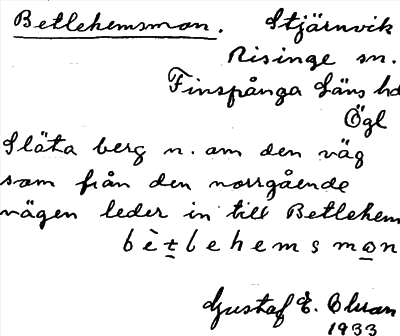 Betlehemsmon. Stjärnvik
Risinge sn.
Finspånga läns hd
Ögl
Släta berg n. om den väg
som från den norrgående
vägen leder in till Betlehem
bètlehemsmon
Gustaf E.
1933